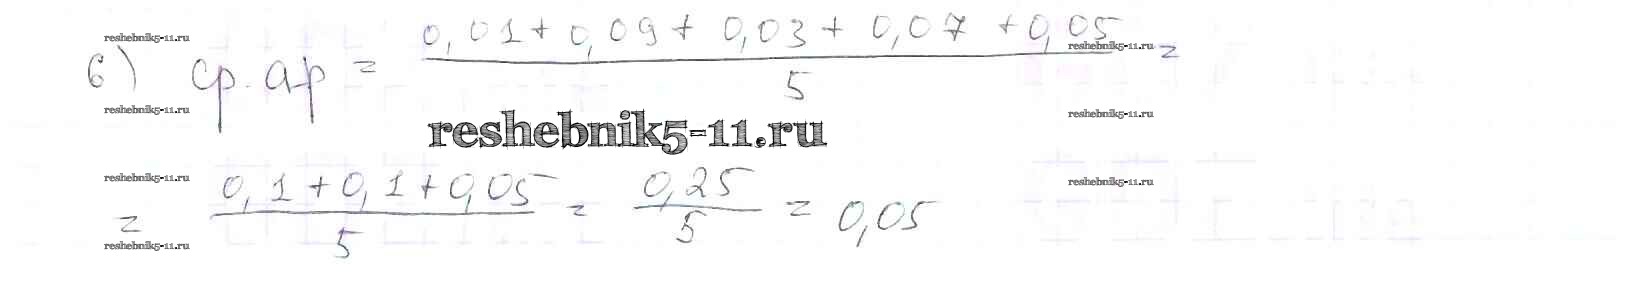 0,01 + 0,09 + 0,03 + 0,07 + 0,05
reshebnik5-11.ru reshebnik5-11.ru
6) ср. ар = =
5
reshebnik5-11.ru reshebnik5-11.ru
reshebnik5-11.ru
reshebnik5-11.ru reshebnik5-11.ru
0,1 + 0,1 + 0,05 0,25
= = = 0,05
5 5
reshebnik5-11.ru